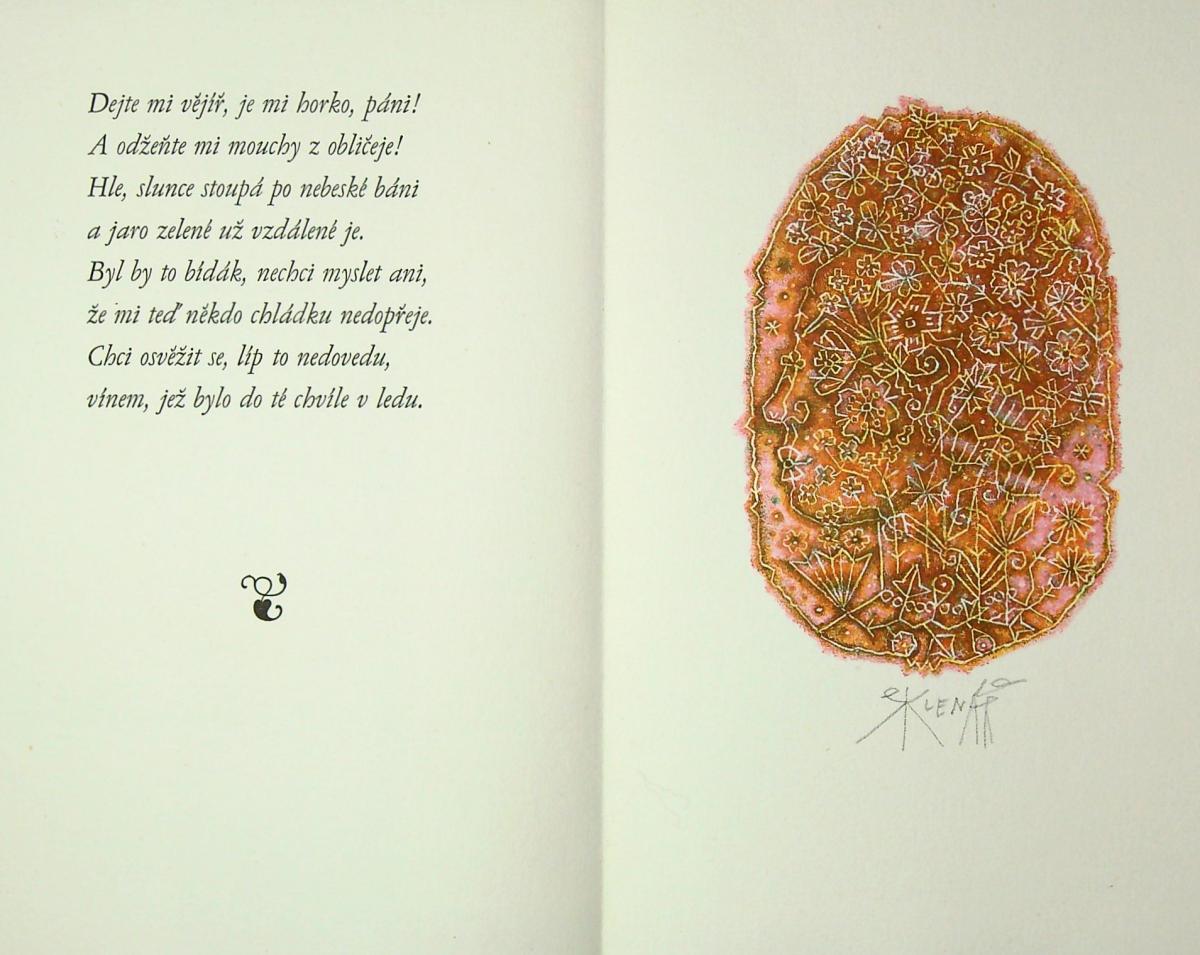 Dejte mi vějíř, je mi horko, páni!
A odžeňte mi mouchy z obličeje!
Hle, slunce stoupá po nebeské báni
a jaro zelené už vzdálené je.
Byl by to bídák, nechci myslet ani,
že mi teď někdo chládku nedopřeje.
Chci osvěžit se, líp to nedovedu,
vínem, jež bylo do té chvíle v ledu.